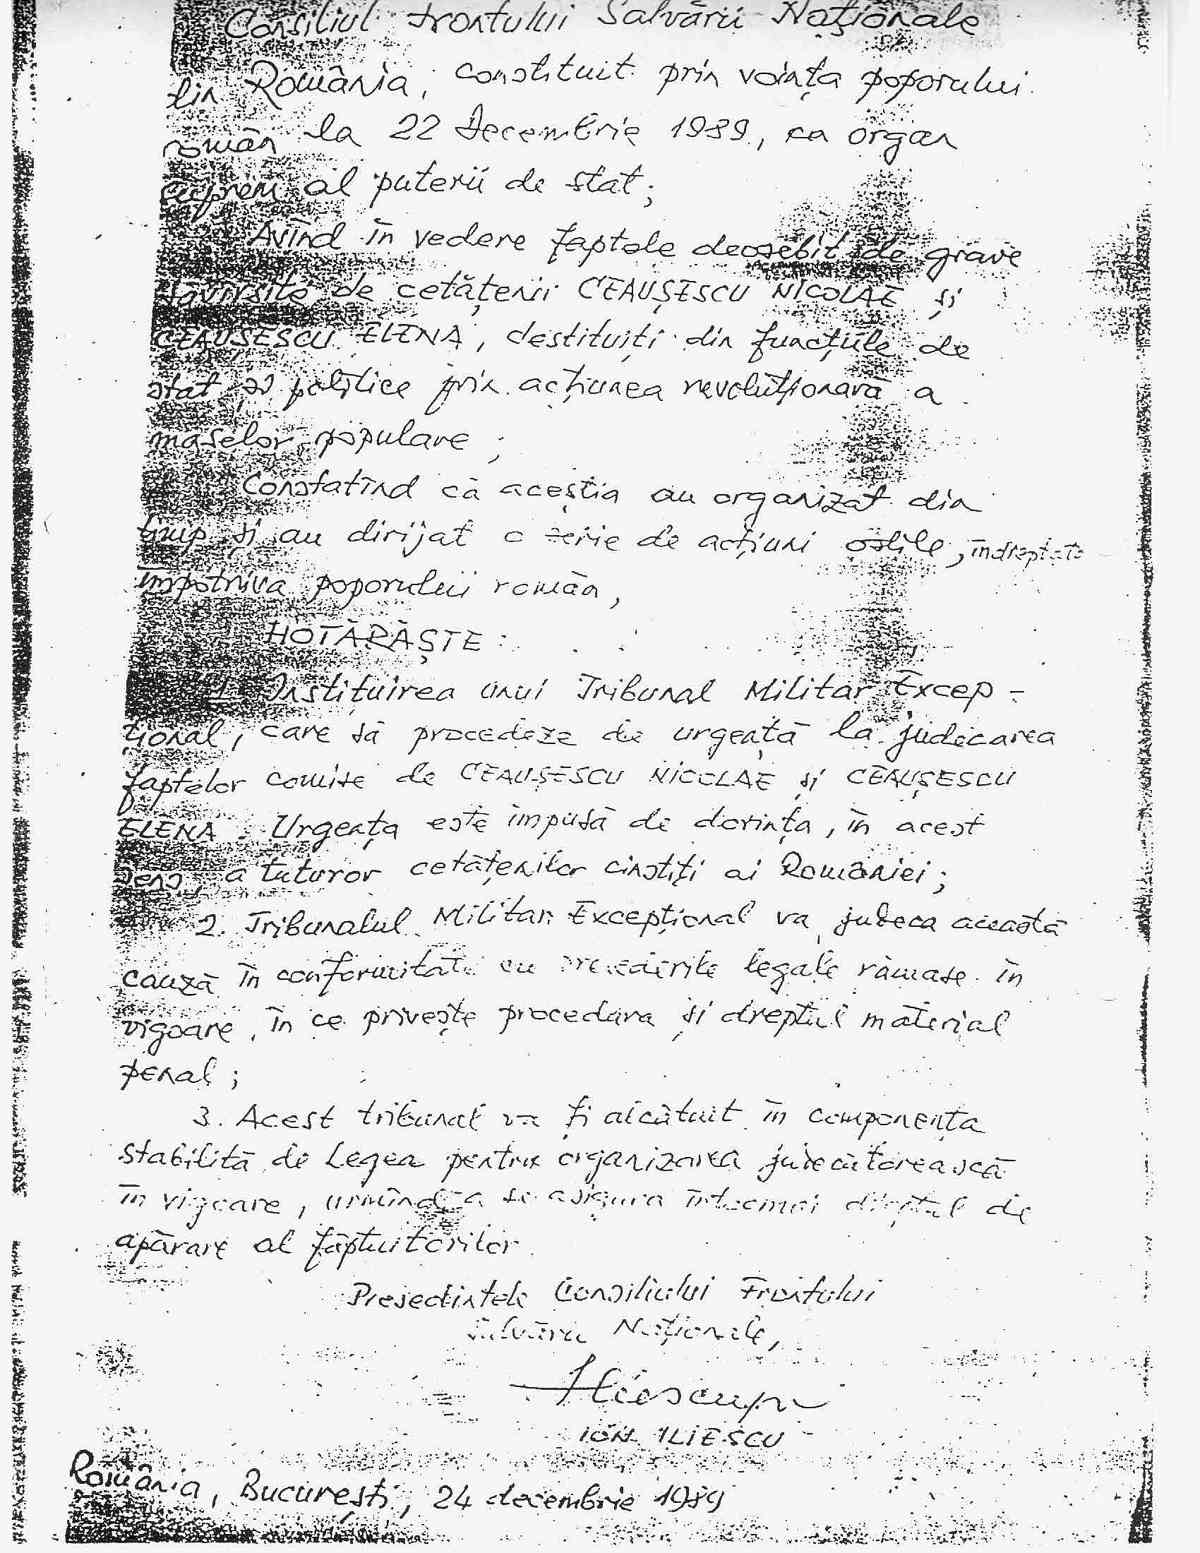 Consiliul Frontului Salvării Naționale
din România, constituit prin voința poporului
român la 22 Decembrie 1989, ca organ
suprem al puterii de stat;
Avînd în vedere faptele deosebit de grave
săvîrșite de cetățenii CEAUȘESCU NICOLAE și
CEAUȘESCU ELENA, destituiți din funcțiile de
stat și politice prin acțiunea revoluționară a
maselor populare;
Constatînd că aceștia au organizat din
timp și au dirijat o serie de acțiuni ostile, îndreptate
împotriva poporului român,
HOTĂRĂȘTE:
1. Instituirea unui Tribunal Militar Excep-
țional, care să procedeze de urgență la judecarea
faptelor comise de CEAUȘESCU NICOLAE și CEAUȘESCU
ELENA. Urgența este impusă de dorința, în acest
sens, a tuturor cetățenilor cinstiți ai României;
2. Tribunalul Militar Excepțional va judeca această
cauză în conformitate cu prevederile legale rămase în
vigoare, în ce privește procedura și dreptul material
penal;
3. Acest tribunal va fi alcătuit în componența
stabilită de Legea pentru organizarea judecătorească
în vigoare, urmînd a se asigura întocmai dreptul de
apărare al făptuitorilor.
Președintele Consiliului Frontului
Salvării Naționale,
Iliescu
ION ILIESCU
România, București, 24 decembrie 1989